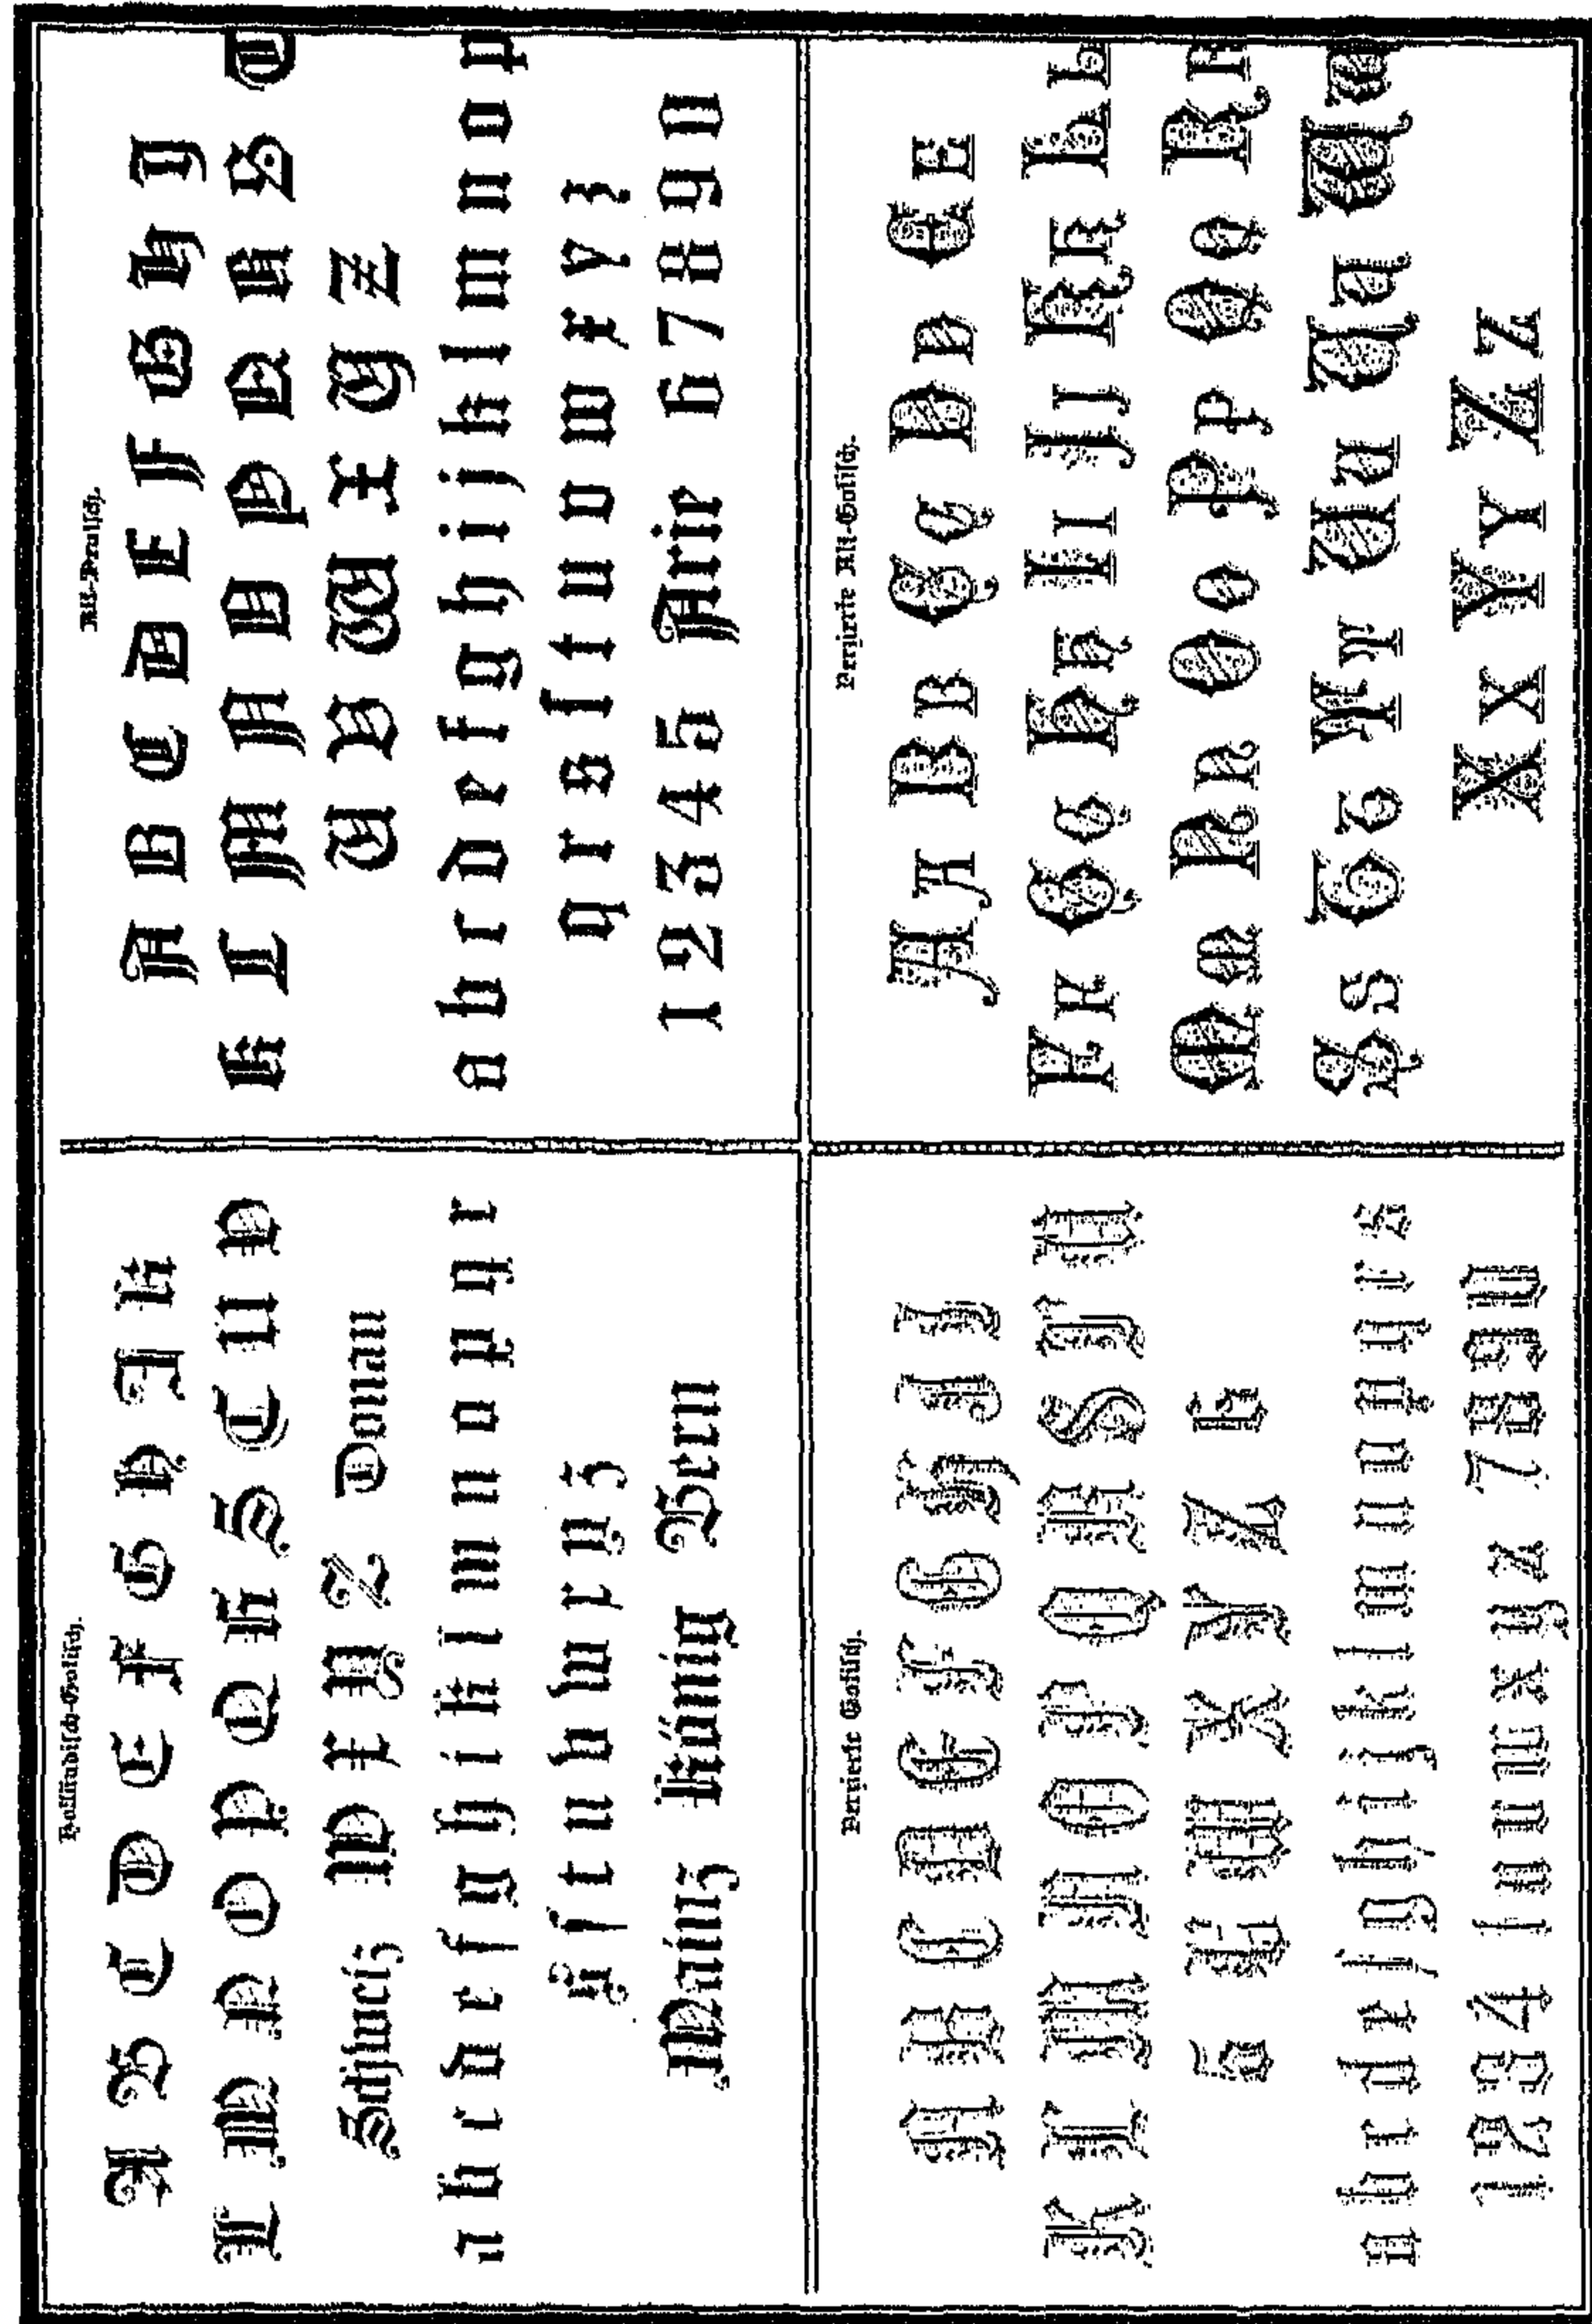 Holländisch-Gotisch.
A B C D E F G H I K
L M N O P Q R S T U V
Schweiz W X Y Z Donau
a b c d e f g h i k l m n o p q r
s ſ t u v w x y z
Mainz König Bern
Alt-Deutsch.
A B C D E F G H J
K L M N O P Q R S T
U V W X Y Z
a b c d e f g h i j k l m n o p
q r s ſ t u v w x y z
1 2 3 4 5 Arie 6 7 8 9 0
Verzierte Gotisch.
A B C D E F G H I J
K L M N O P Q R S T U
5 V W X Y Z 6
a b c d e f g h i j k l m n o p q r s
1 2 3 4 t u v w x y z 7 8 9 0
Verzierte Alt-Gotisch.
A A B B C C D D E E
F F G G H H I I J J K K L L
M M N N O O P P Q Q R R
S S T T T T U U V V W W
X X Y Y Z Z